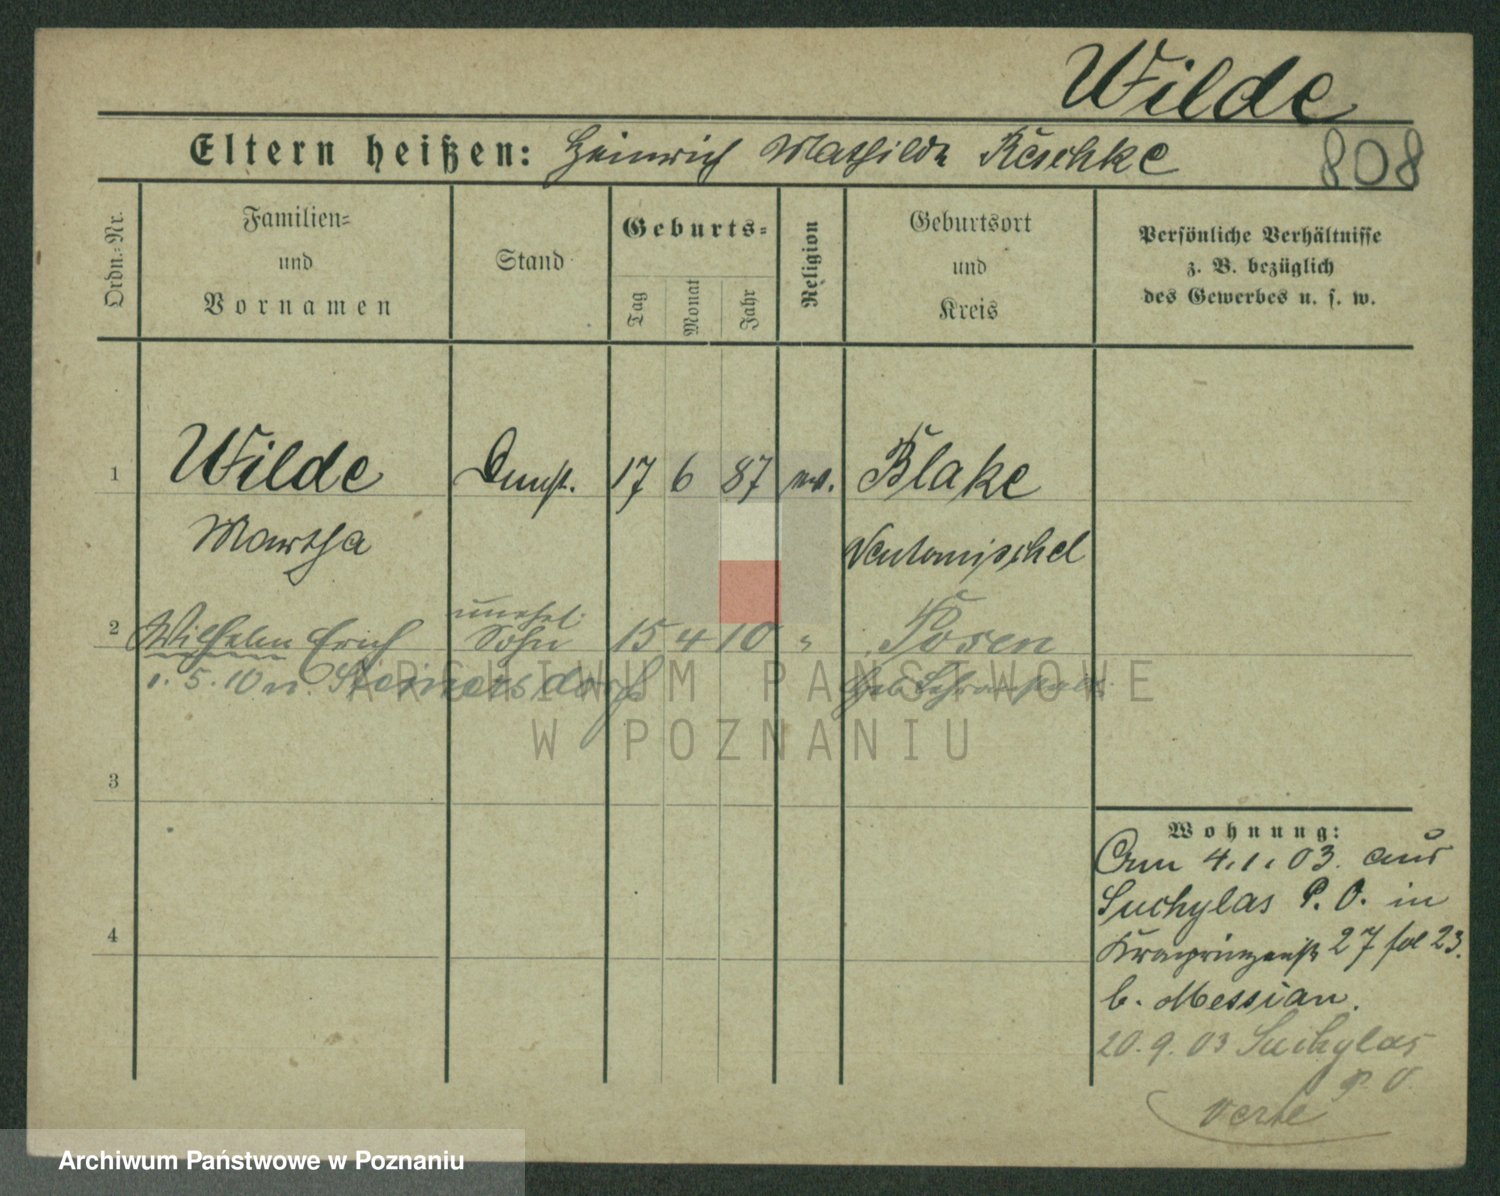 Wilde
Eltern heißen: Heinrich Mathilde Reschke
808
Ordn.-Nr.
Familien-
und
Vornamen
Stand
Geburts-
Tag
Monat
Jahr
Religion
Geburtsort
und
Kreis
Persönliche Verhältnisse
z. B. bezüglich
des Gewerbes u. s. w.
1
Wilde
Martha
Dienst.
17 6 87
Blake
Neutomischel
2
Wilhelm Erich
unehel.
Sohn
15 4 10 "
Posen
1.5.10 n. Steinersdorf
3
4
Wohnung:
Am 4.1.03. aus
Suchylas P. O. in
Kronprinzenstr 27
b. Messian.
20.9.03 Suchylas
P. O.
verte
ARCHIWUM PAŃSTWOWE
W POZNANIU
Archiwum Państwowe w Poznaniu